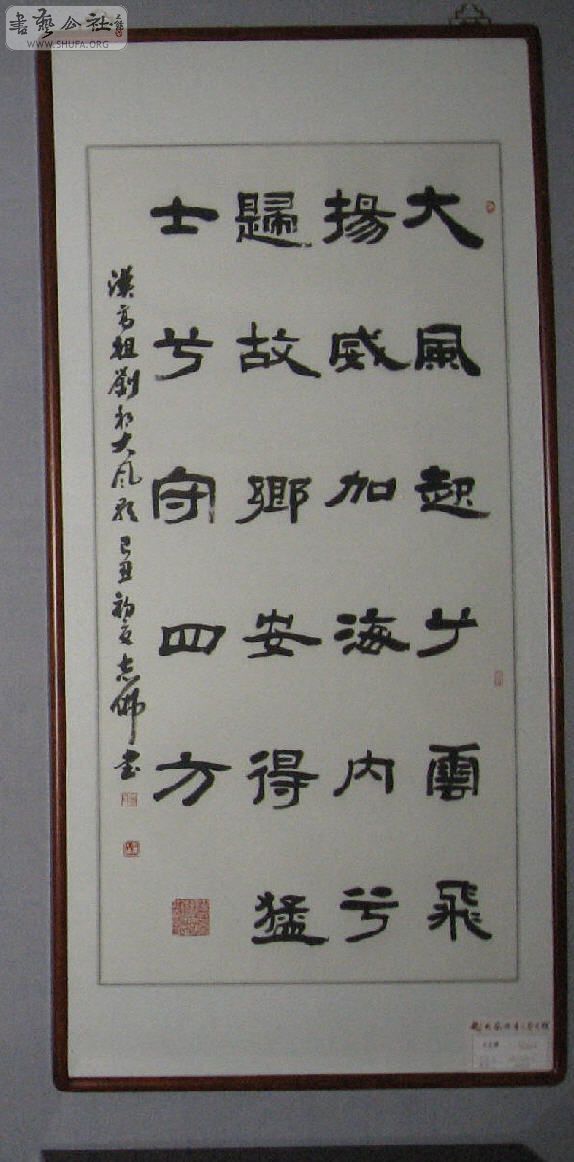 大風起兮雲飛
揚威加海内兮
歸故鄉安得猛
士兮守四方
漢高祖劉邦大風歌己丑初夏志佛書
書藝公社
WWW.SHUFA.ORG